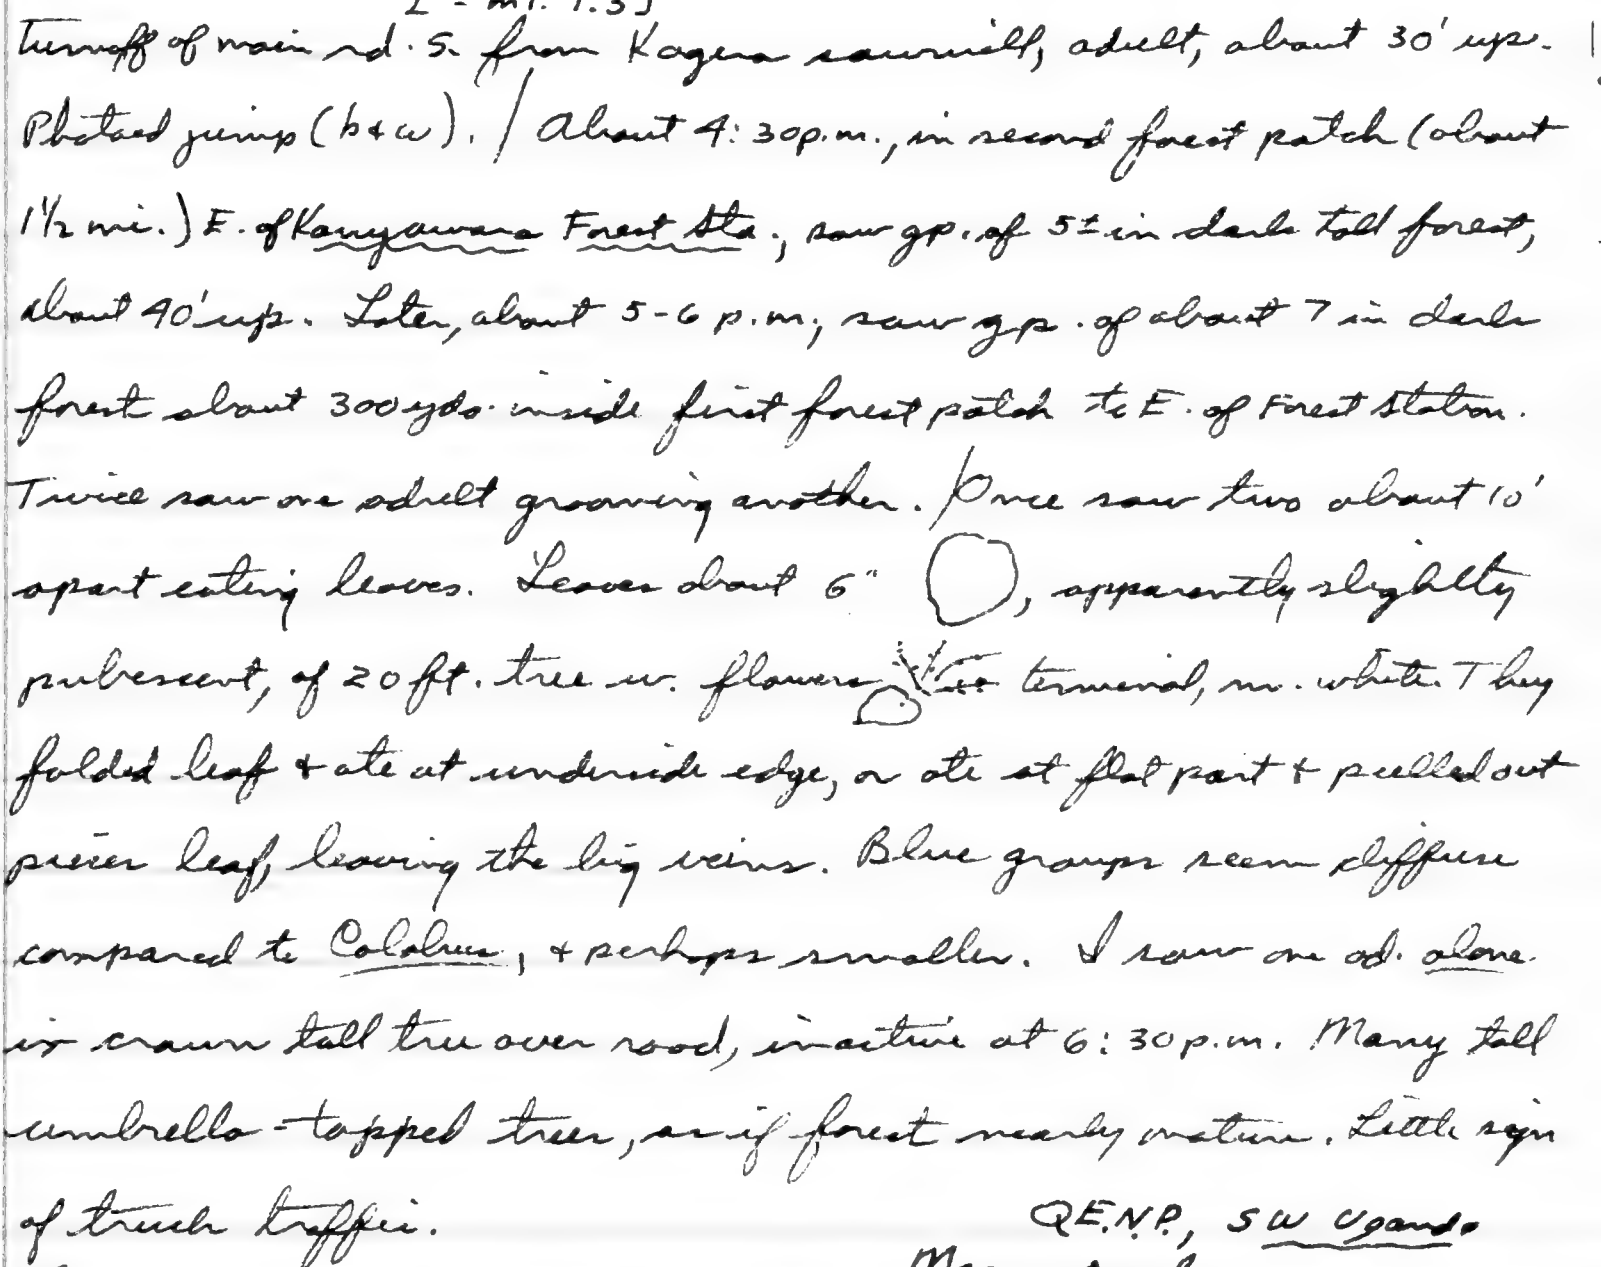 Turnoff of main rd. S. from Kagera sawmill, adult, about 30' up.
Photoed jump (b+w). / About 4:30p.m., in second forest patch (about
1½ mi.) E. of Kanyawara Forest Sta., saw gp. of 5± in dark tall forest,
about 40' up. Later, about 5-6 p.m., saw gp. of about 7 in dark
forest about 300 yds. inside first forest patch to E. of Forest Station.
Twice saw one adult grooming another. / Once saw two about 10'
apart eating leaves. Leaves about 6" , apparently slightly
pubescent, of 20 ft. tree w. flowers terminal, m. white. They
folded leaf + ate at underside edge, or ate at flat part + pulled out
pieces leaf, leaving the big veins. Blue groups seem diffuse
compared to Colobus, + perhaps smaller. I saw one ad. alone
in crown tall tree over road, inactive at 6:30 p.m. Many tall
umbrella-topped trees, as if forest nearly mature. Little sign
of truck traffic.
Q.E.N.P., SW Uganda